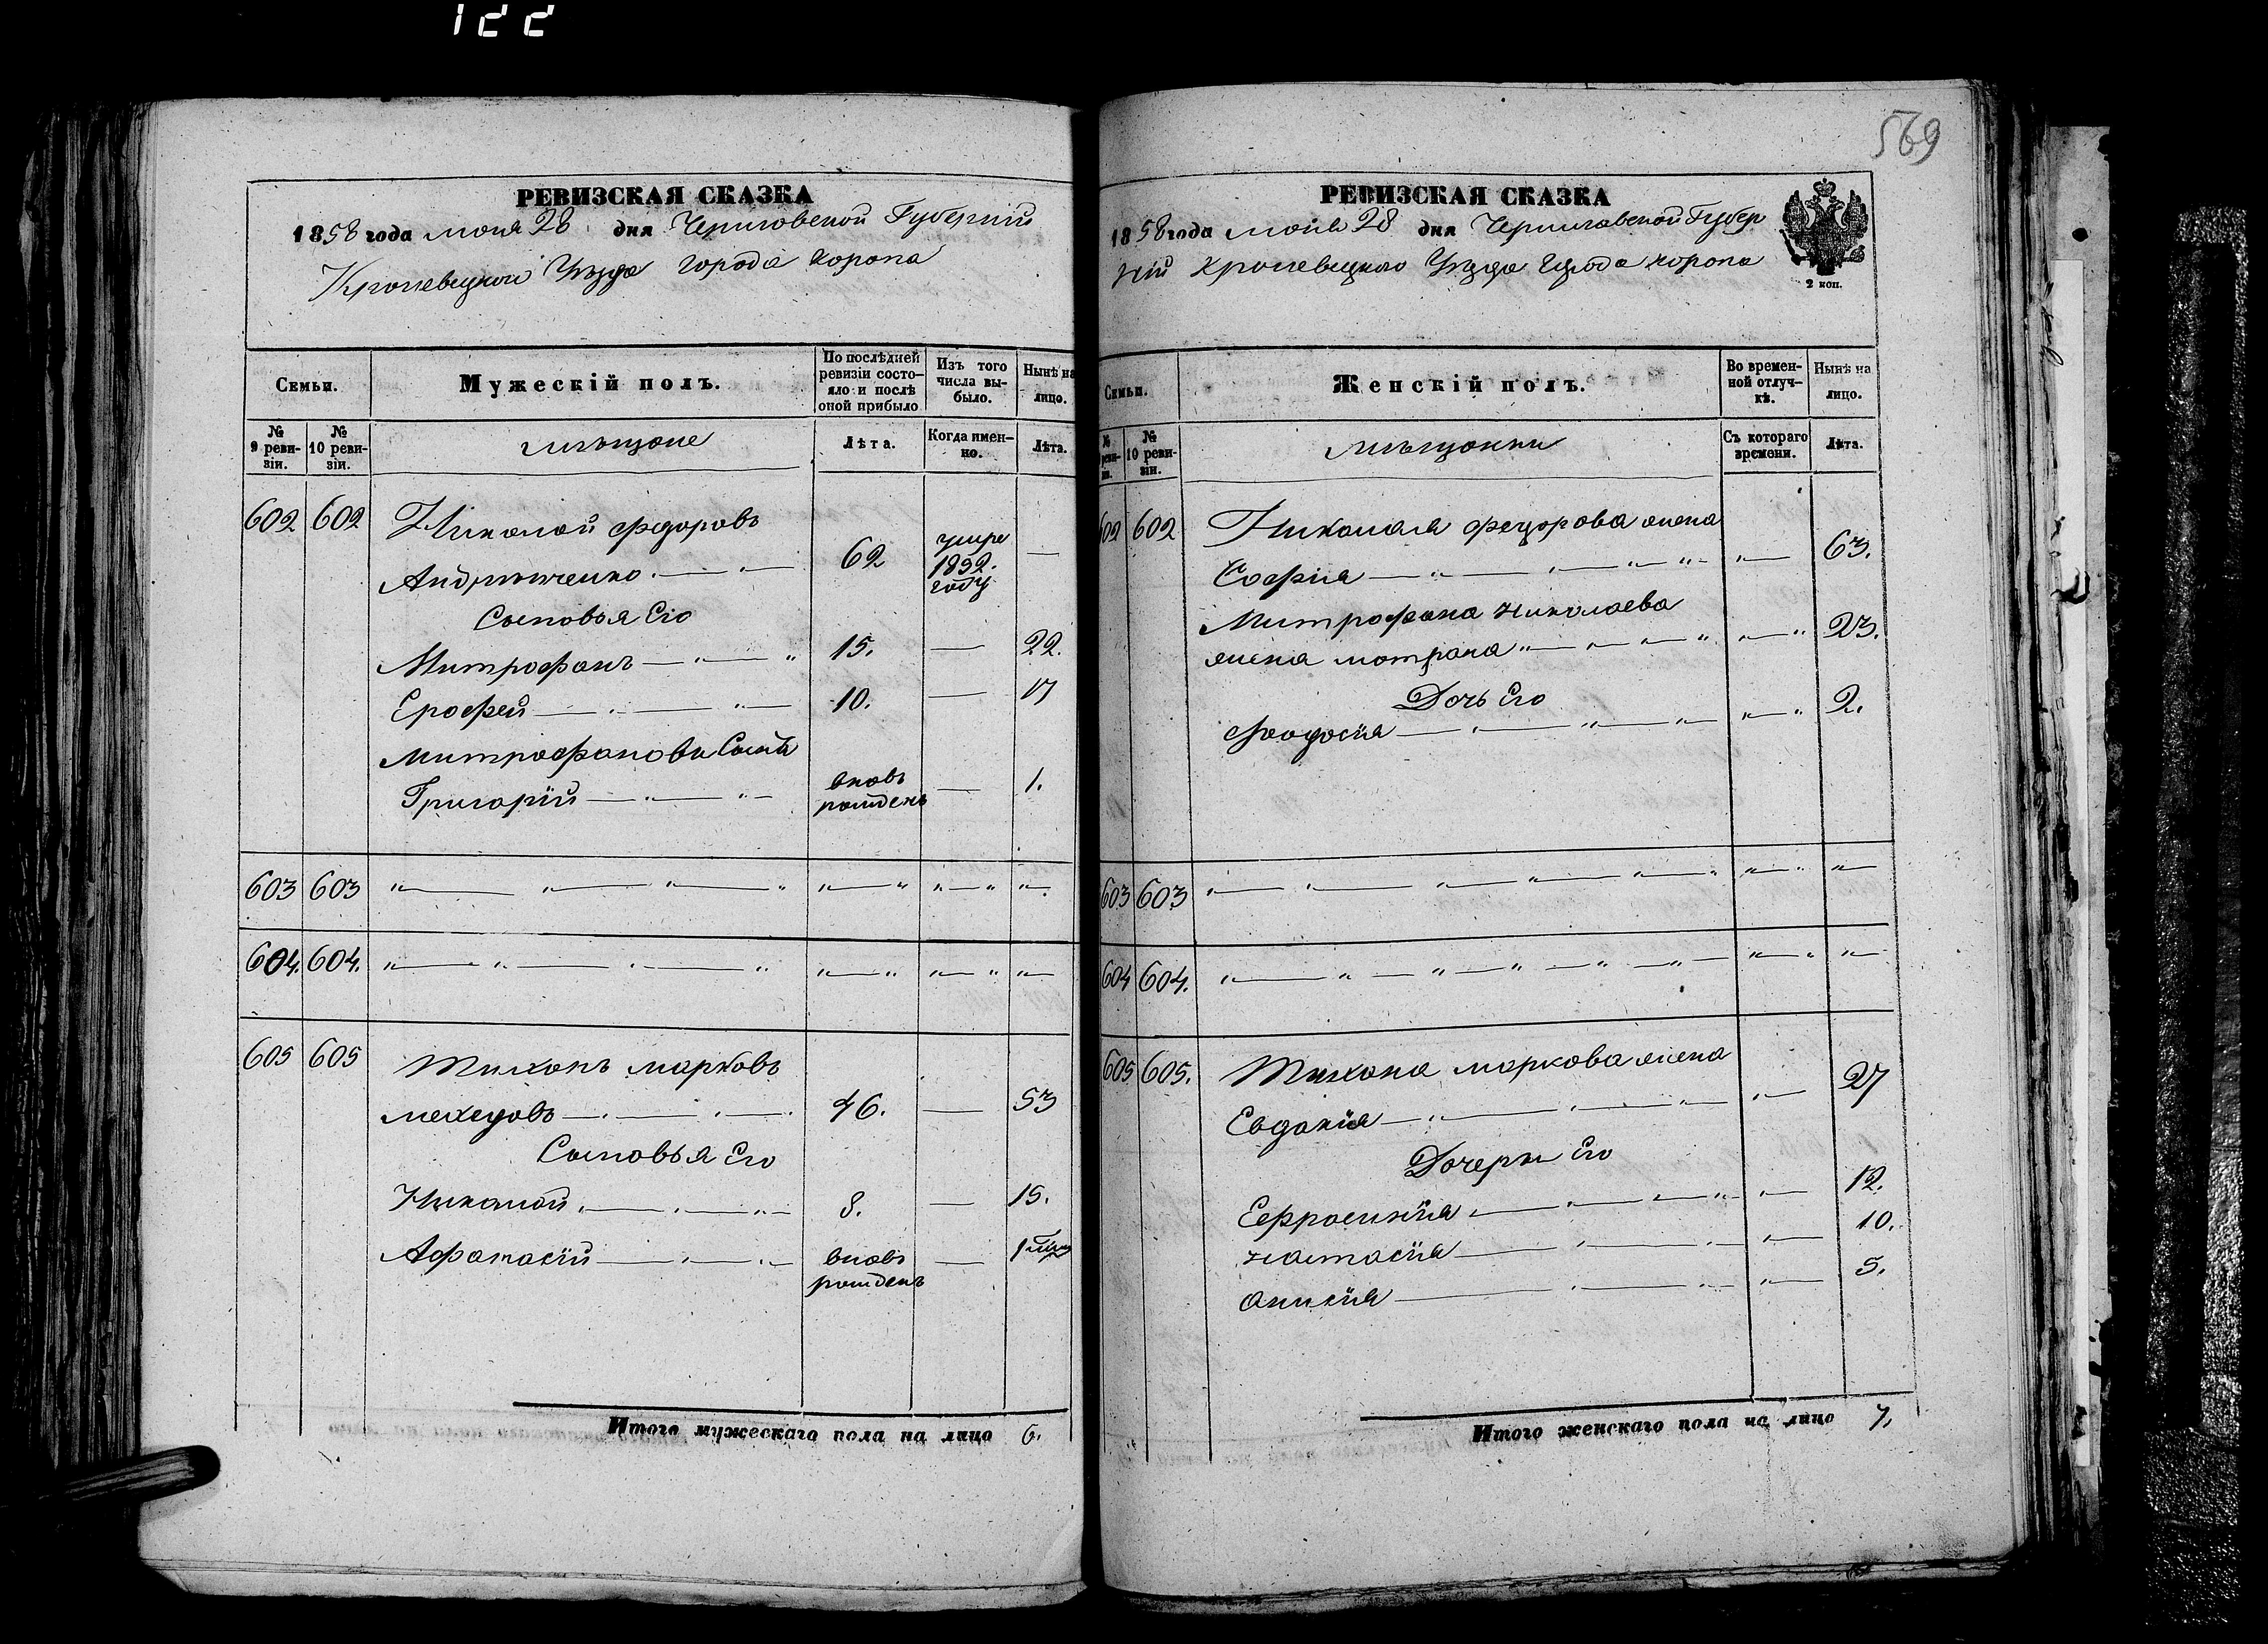 122
РЕВИЗСКАЯ СКАЗКА
1858 года моия 28 дня Черниговской Губерніи
Кролевецкого Уѣзда города Коропа
Семьи.
Мужескій полъ.
По послѣдней ревизіи состояло и послѣ оной прибыло
Изъ того числа выбыло.
Нынѣ на лицо.
№ 9 ревизіи.
№ 10 ревизіи.
мѣщане
Лѣта.
Когда именно.
Лѣта.
602 602 Николай федоровъ
Андрѣыченко 62 умре 1852. году —
Сыновья Его
Митрофанъ 15. — 22.
Ерофей 10. — 17
митрофановъ Сынъ
Григорій вновь рожденъ — 1.
603 603
604. 604.
605 605 Тихонъ марковъ
мехедовъ 46. — 53
Сыновья Его
Николай 8. — 15.
Афанасій вновь рожденъ — 1
Итого мужескаго пола на лицо 6.
569
РЕВИЗСКАЯ СКАЗКА
1858 года моия 28 дня Черниговской Губер
ніи Кролевецкого Уѣзда Города коропа
2 коп.
Семьи.
Женскій полъ.
Во временной отлучкѣ.
Нынѣ на лицо.
№ 10 ревизіи.
мѣщанки
Съ котораго времени.
Лѣта.
602 602 Николая федорова жена
Софія 63.
Митрофана николаева
жена мотрона 23.
Дочь Его
феодосія 2.
603 603
604 604.
605 605. Тихона маркова жена
Евдокія 27
Дочери Его
Ефросинія 12.
настасія 10.
Анисія 5.
Итого женскаго пола на лицо 7.